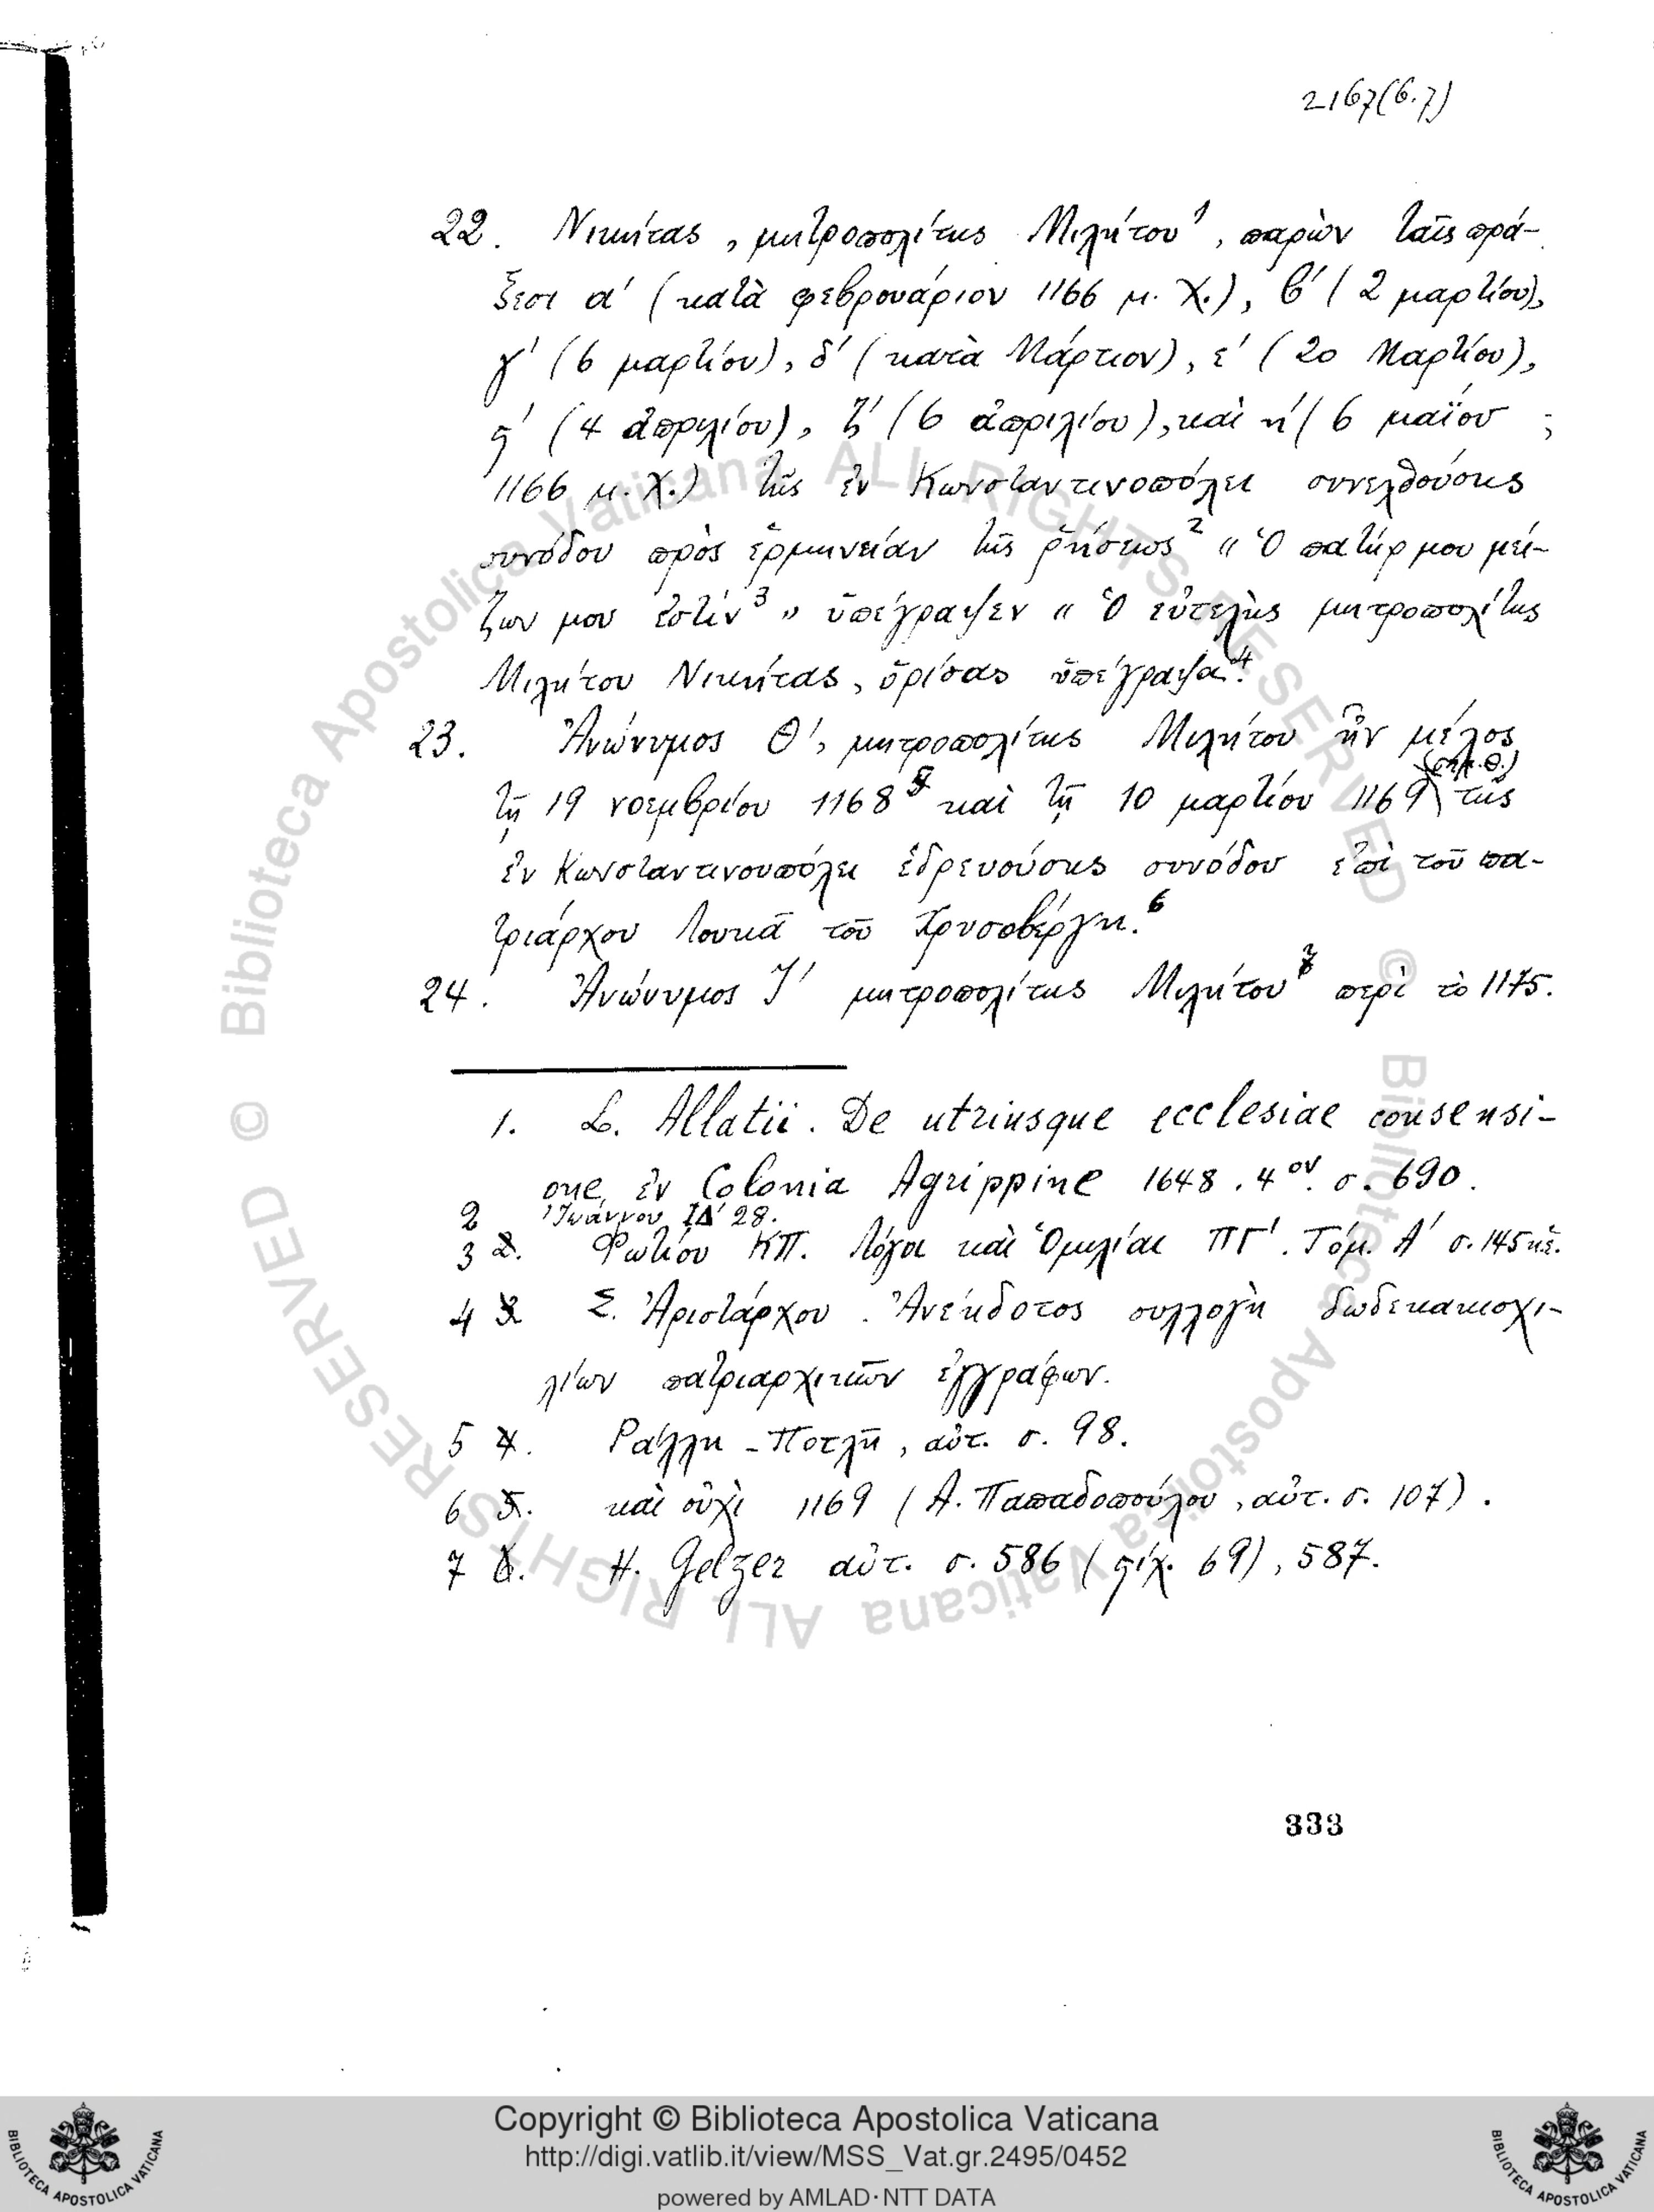 2167(6.7)
22. Νικήτας, μητροπολίτης Μιλήτου¹, παρὼν ταῖς πρά-
ξεσι α' (κατὰ φεβρουάριον 1166 μ. Χ.), β' (2 μαρτίου),
γ' (6 μαρτίου), δ' (κατὰ Μάρτιον), ε' (20 Μαρτίου),
ϛ' (4 ἀπριλίου), ζ' (6 ἀπριλίου), καὶ η' (6 μαΐου ;
1166 μ. Χ.) τῆς ἐν Κωνσταντινοπόλει συνελθούσης
συνόδου πρὸς ἑρμηνείαν τῆς ῥήσεως² « Ὁ πατήρ μου μεί-
ζων μου ἐστίν³ » ὑπέγραψεν « Ὁ εὐτελὴς μητροπολίτης
Μιλήτου Νικήτας, ὁρίσας ὑπέγραψα⁴.
23. Ἀνώνυμος Θ', μητροπολίτης Μιλήτου ἦν μέλος
τῇ 19 νοεμβρίου 1168⁵ καὶ τῇ 10 μαρτίου 1169 τῆς
ἐν Κωνσταντινουπόλει ἑδρευούσης συνόδου ἐπὶ τοῦ πα-
τριάρχου Λουκᾶ τοῦ Χρυσοβέργη.⁶
24. Ἀνώνυμος Ι' μητροπολίτης Μιλήτου⁷ περὶ τὸ 1175.
1. L. Allatii. De utriusque ecclesiae consensi-
one, ἐν Colonia Agrippine 1648. 4ον. σ. 690.
2 Ἰωάννου ΙΔ' 28.
3 2. Φωτίου ΚΠ. Λόγοι καὶ Ὁμιλίαι ΠΓ'. Τόμ. Α' σ. 145 κἑ.
4 3 Σ. Ἀριστάρχου. Ἀνέκδοτος συλλογὴ δωδεκακισχι-
λίων πατριαρχικῶν ἐγγράφων.
5 4. Ράλλη - Ποτλῆ, αὐτ. σ. 98.
6 5. καὶ οὐχὶ 1169 (Α. Παπαδοπούλου, αὐτ. σ. 107).
7 6. H. Gelzer αὐτ. σ. 586 (στίχ. 69), 587.
333
© Biblioteca Apostolica Vaticana ALL RIGHTS RESERVED © Biblioteca Apostolica Vaticana ALL RIGHTS RESERVED
Copyright © Biblioteca Apostolica Vaticana
http://digi.vatlib.it/view/MSS_Vat.gr.2495/0452
powered by AMLAD·NTT DATA
BIBLIOTECA APOSTOLICA VATICANA
BIBLIOTECA APOSTOLICA VATICANA